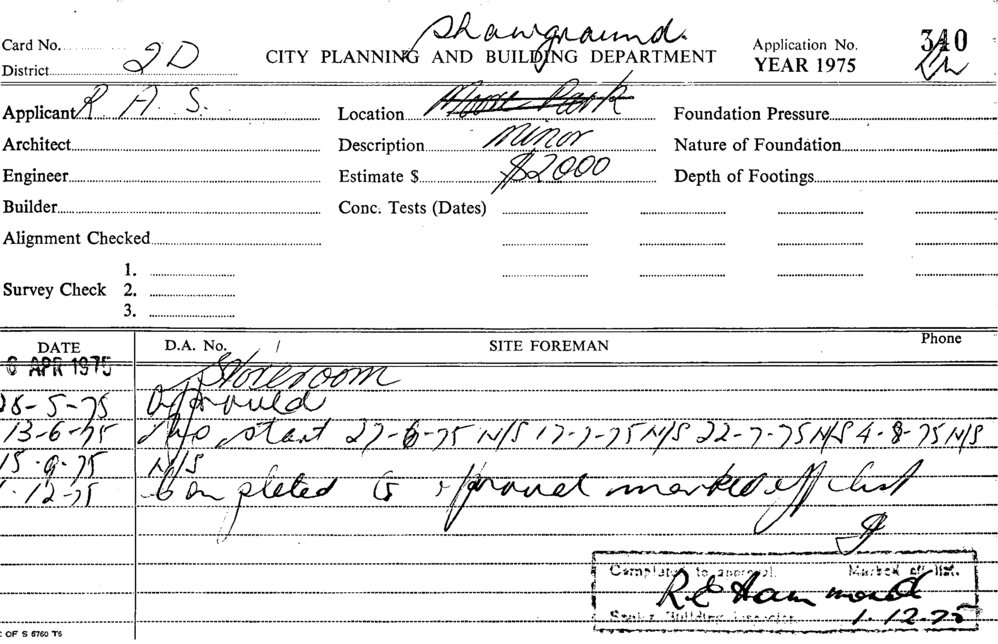 Showground.
Card No. CITY PLANNING AND BUILDING DEPARTMENT Application No. 340
District 2D YEAR 1975
Applicant R. A. S. Location Moore Park Foundation Pressure
Architect Description Minor Nature of Foundation
Engineer Estimate $ $2000 Depth of Footings
Builder Conc. Tests (Dates)
Alignment Checked
1.
Survey Check 2.
3.
DATE D.A. No. / SITE FOREMAN Phone
APR 1975 Storeroom
28-5-75 Approved
13-6-75 No start 27-6-75 N/S 17-7-75 N/S 22-7-75 N/S 4-8-75 N/S
15-9-75 N/S
1-12-75 Completed to approval marked off list
Completed to approval. Marked off list.
R E Hammond
Senior Building Inspector 1.12.75
OF S 6760 T6